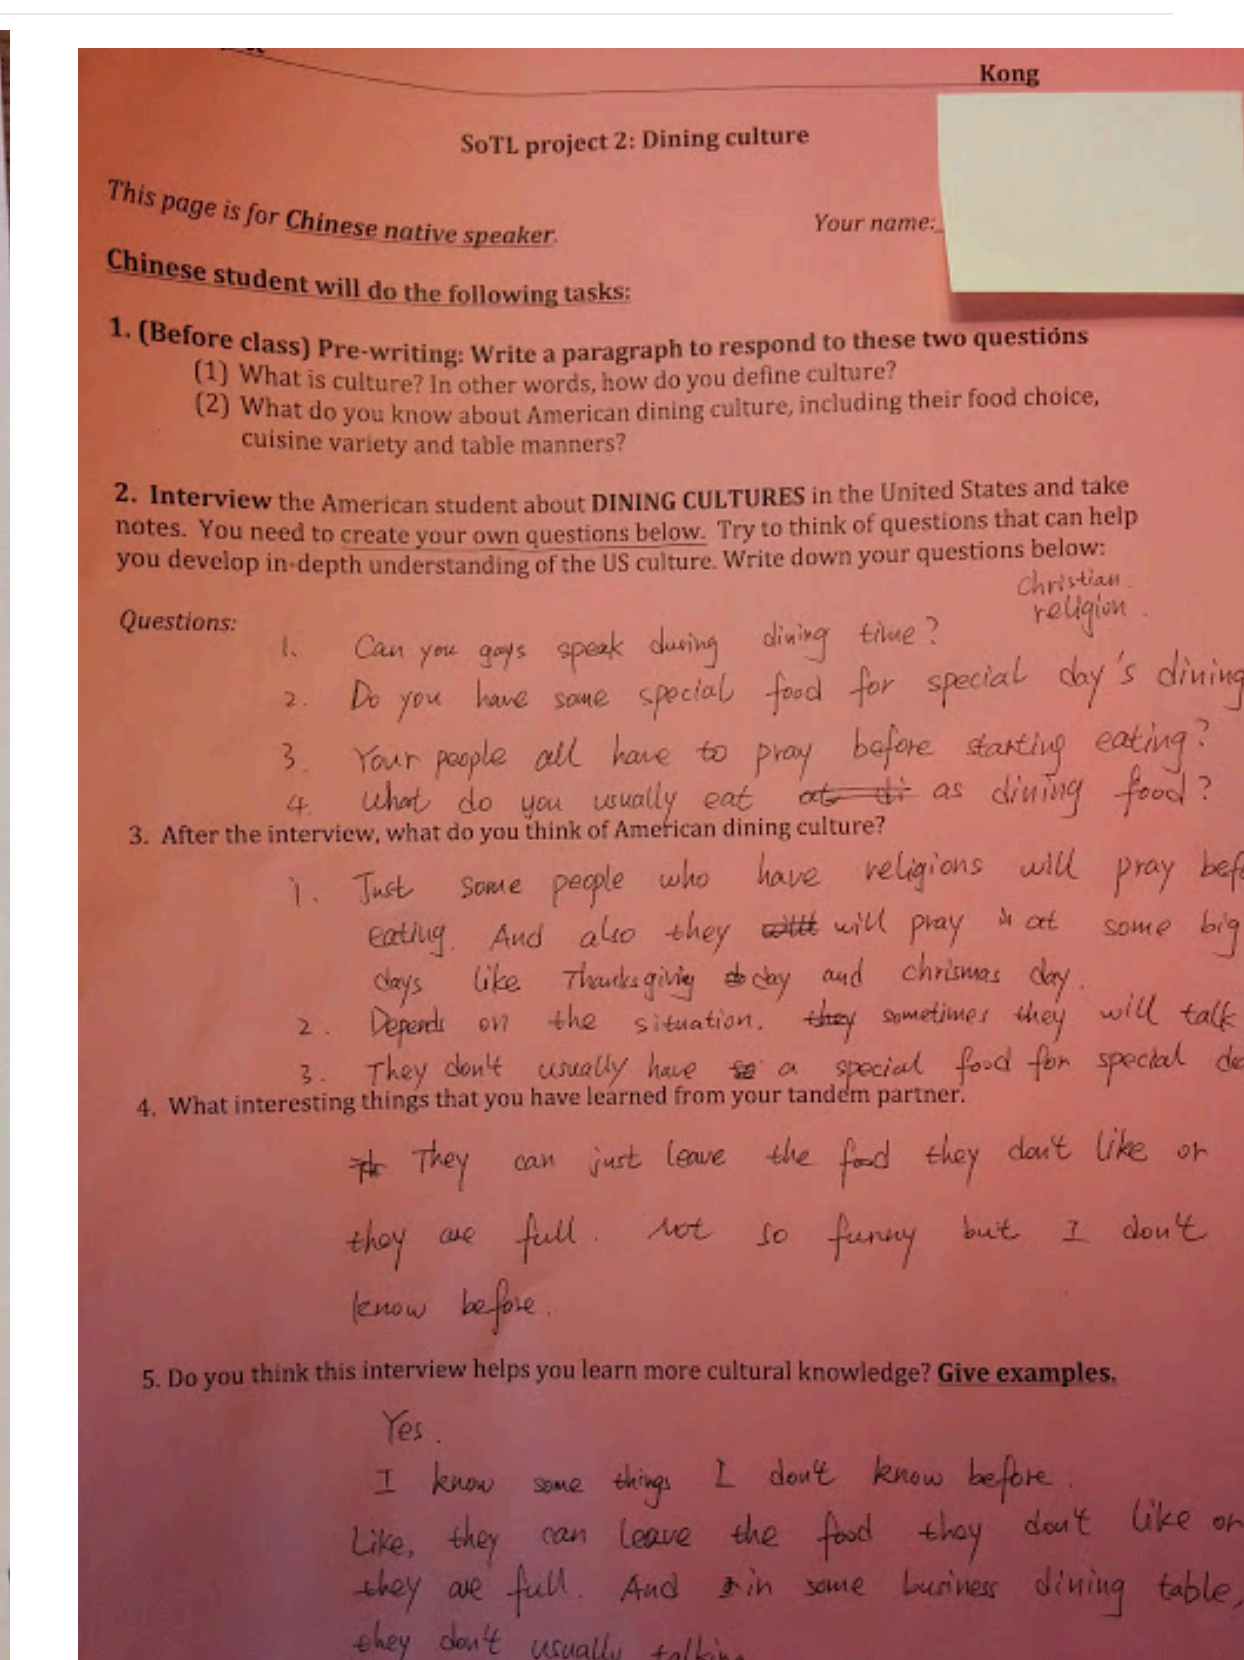 Kong
SoTL project 2: Dining culture
This page is for Chinese native speaker.
Your name:
Chinese student will do the following tasks:
1. (Before class) Pre-writing: Write a paragraph to respond to these two questions
(1) What is culture? In other words, how do you define culture?
(2) What do you know about American dining culture, including their food choice,
cuisine variety and table manners?
2. Interview the American student about DINING CULTURES in the United States and take
notes. You need to create your own questions below. Try to think of questions that can help
you develop in-depth understanding of the US culture. Write down your questions below:
Christian.
religion.
Questions:
1. Can you gays speak during dining time?
2. Do you have some special food for special day's dining
3. Your people all have to pray before starting eating?
4. What do you usually eat at di as dining food?
3. After the interview, what do you think of American dining culture?
1. Just some people who have religions will pray bef
eating. And also they will pray at some big
days like Thanksgiving day and chrismas day.
2. Depends on the situation. they sometimes they will talk
3. They don't usually have a special food for special
4. What interesting things that you have learned from your tandem partner.
They can just leave the food they don't like or
they are full. Not so funny but I don't
know before.
5. Do you think this interview helps you learn more cultural knowledge? Give examples.
Yes.
I know some things I don't know before.
Like, they can leave the food they don't like or
they are full. And in some business dining table,
they don't usually talking